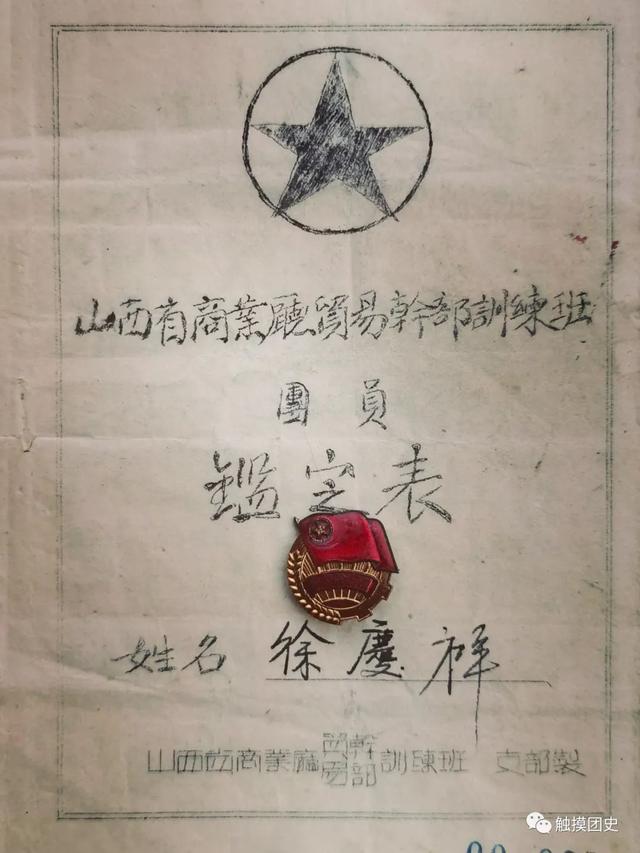 山西省商業廳貿易幹部訓練班
團員
鑑定表
姓名 徐慶祥
山西省商業廳貿易幹部訓練班 支部製
触摸团史